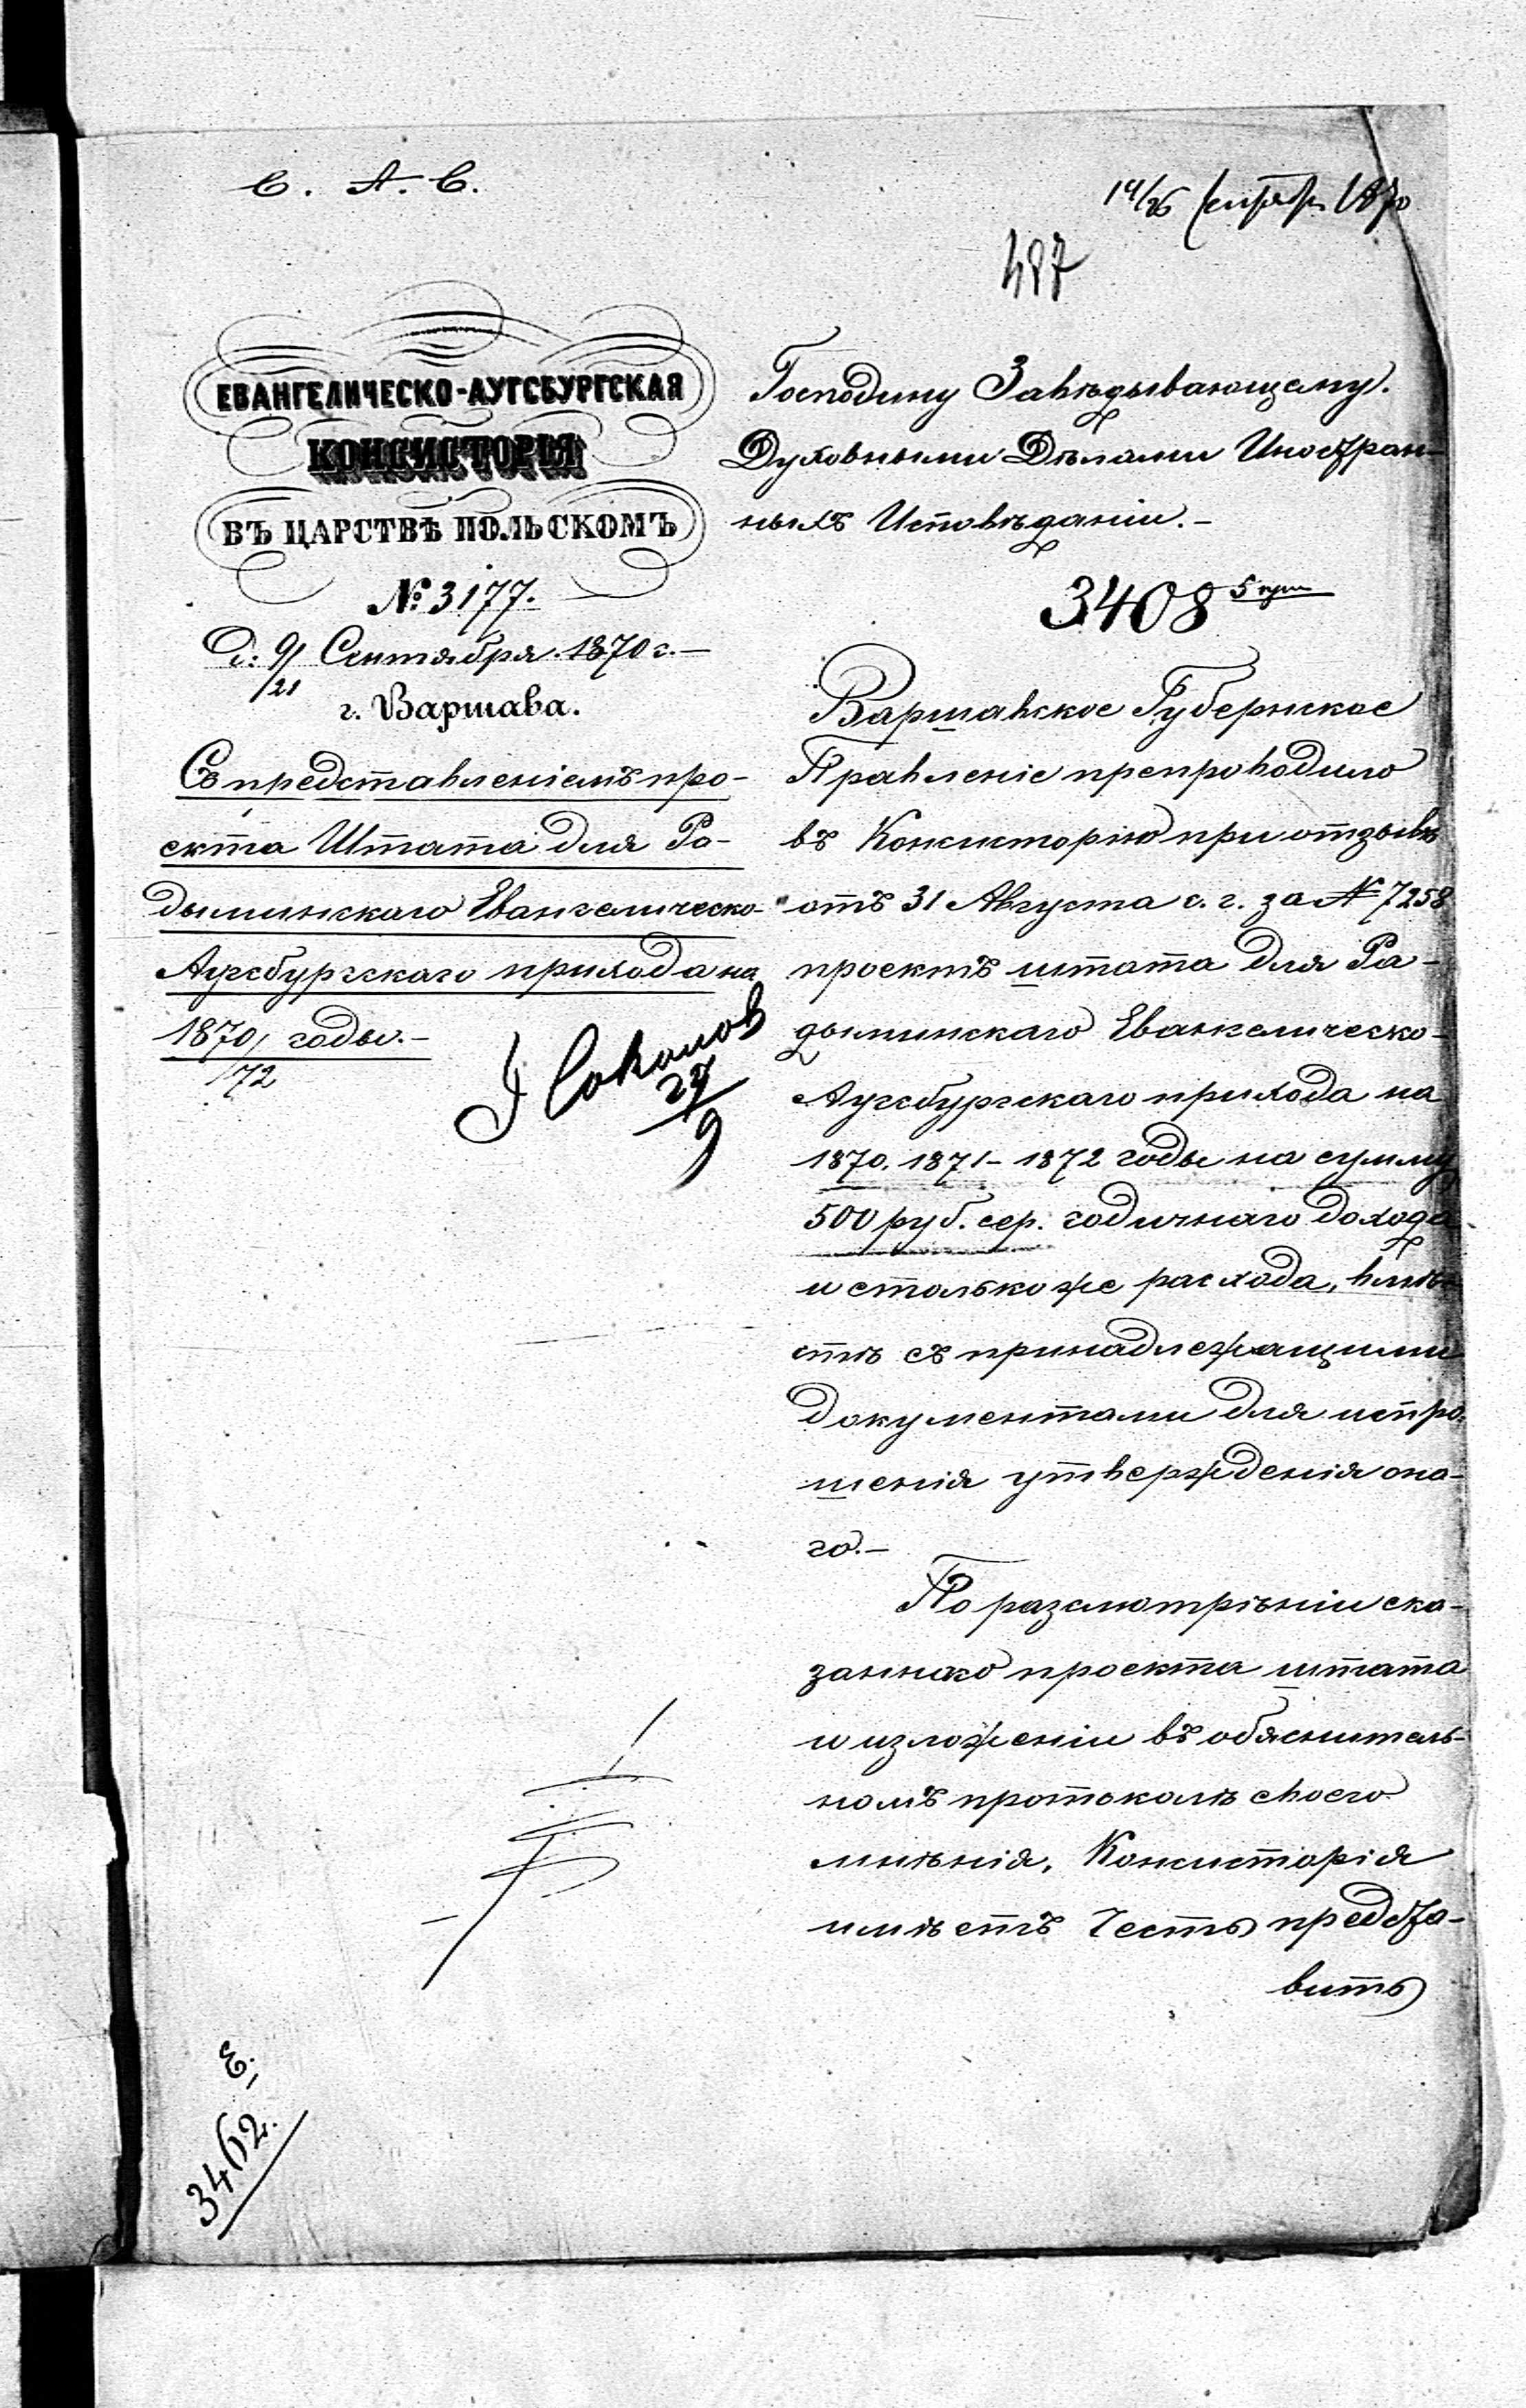 С. А. С.
14/26 Сентябр. 1870
487
ЕВАНГЕЛИЧЕСКО-АУГСБУРГСКАЯ
КОНСИСТОРЬЯ
ВЪ ЦАРСТВѢ ПОЛЬСКОМЪ
№ 3177.
д: 9/21 Сентября 1870 г.—
г. Варшава.
Съ представленіемъ про-
екта Штата для Ра-
дыминскаго Евангелическо-
Аугсбургскаго прихода на
1870/72 годы.—
Соколов
27/9
Господину Завѣдывающему
Духовными Дѣлами Иностран-
ныхъ Исповѣданіи.—
3408
Варшавское Губернское
Правленіе препроводило
въ Консисторію при отзывѣ
отъ 31 Августа с. г. за № 7258
проектъ штата для Ра-
дыминскаго Евангелическо-
Аугсбургскаго прихода на
1870, 1871-1872 годы на сумму
500 руб. сер. годичнаго дохода
и столько же расхода, вмѣ-
стѣ съ принадлежащими
документами для испро-
шенія утвержденія она-
го.—
По разсмотрѣніи ска-
заннаго проекта штата
и изложеніи въ объяснитель-
номъ протоколѣ своего
мнѣнія, Консисторія
имѣетъ честь предста-
вить
3462.